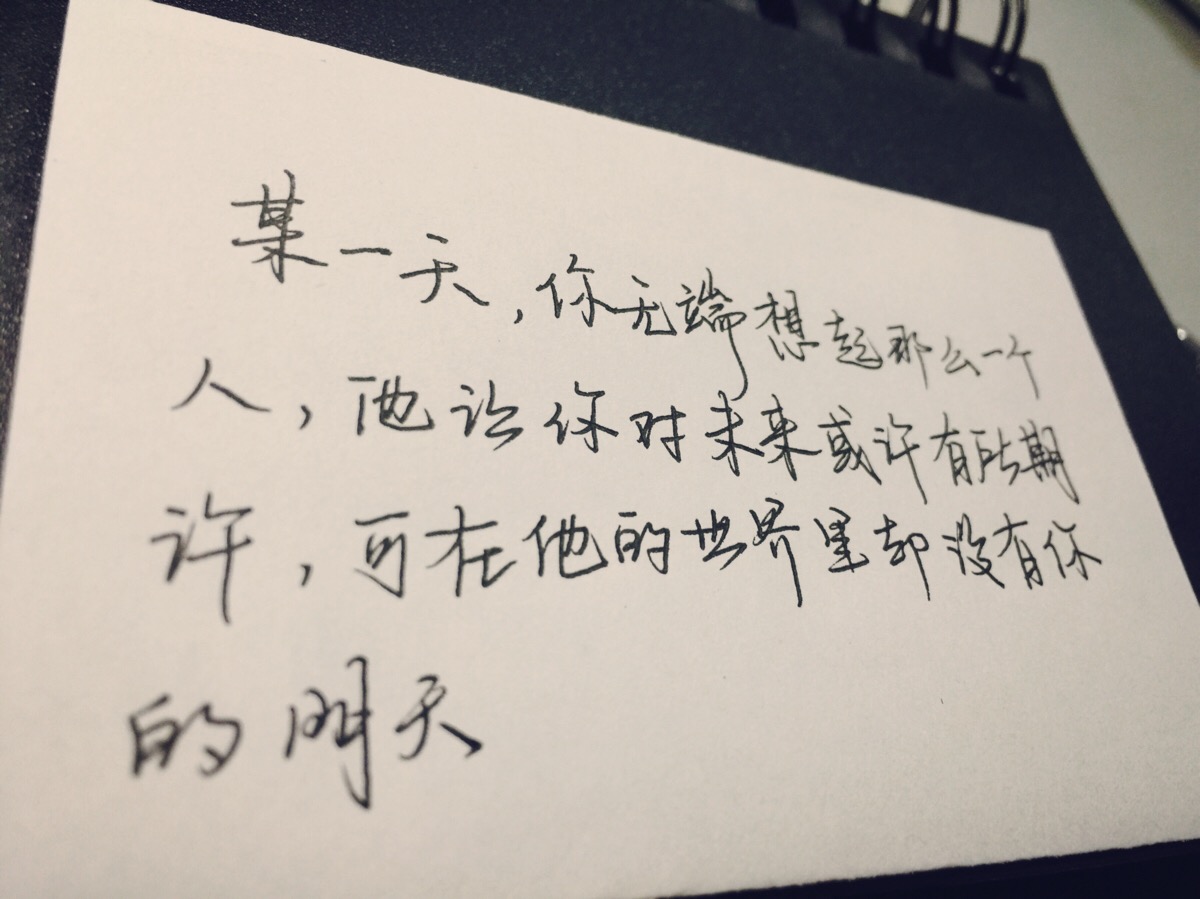 某一天,你无端想起那么一个
人,他让你对未来或许有所期
许,可在他的世界里却没有你
的明天